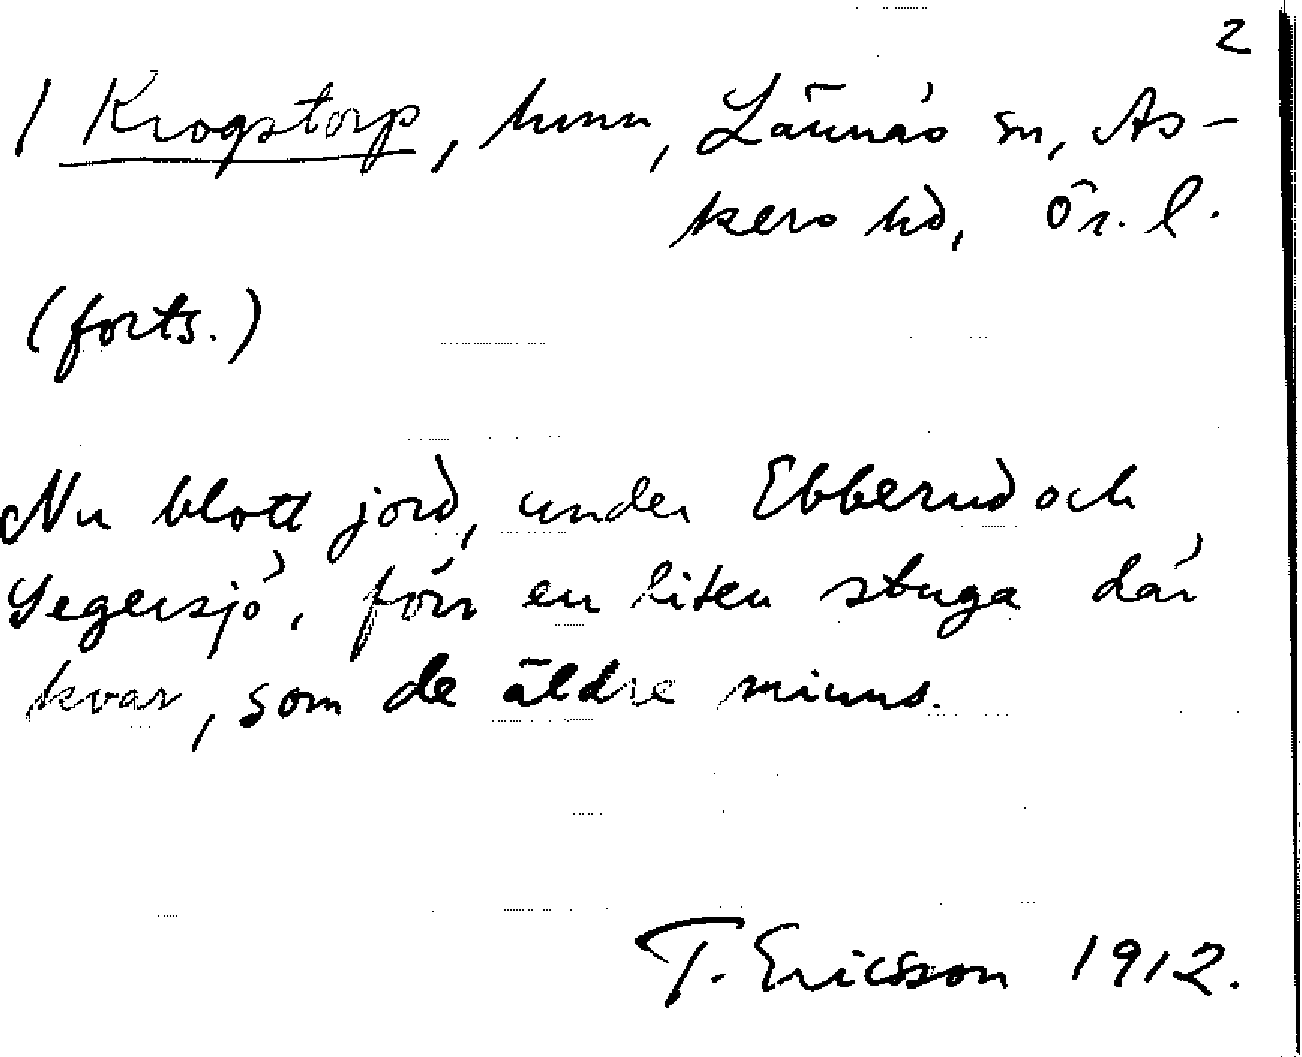 2
/ Krogstorp, hmn, Lännäs sn, As-
kers hd, Ör. l.
(forts.)
Nu blott jord, under Ebberud och
Segersjö, förr en liten stuga där
kvar, som de äldre minns.
T. Ericsson 1912.